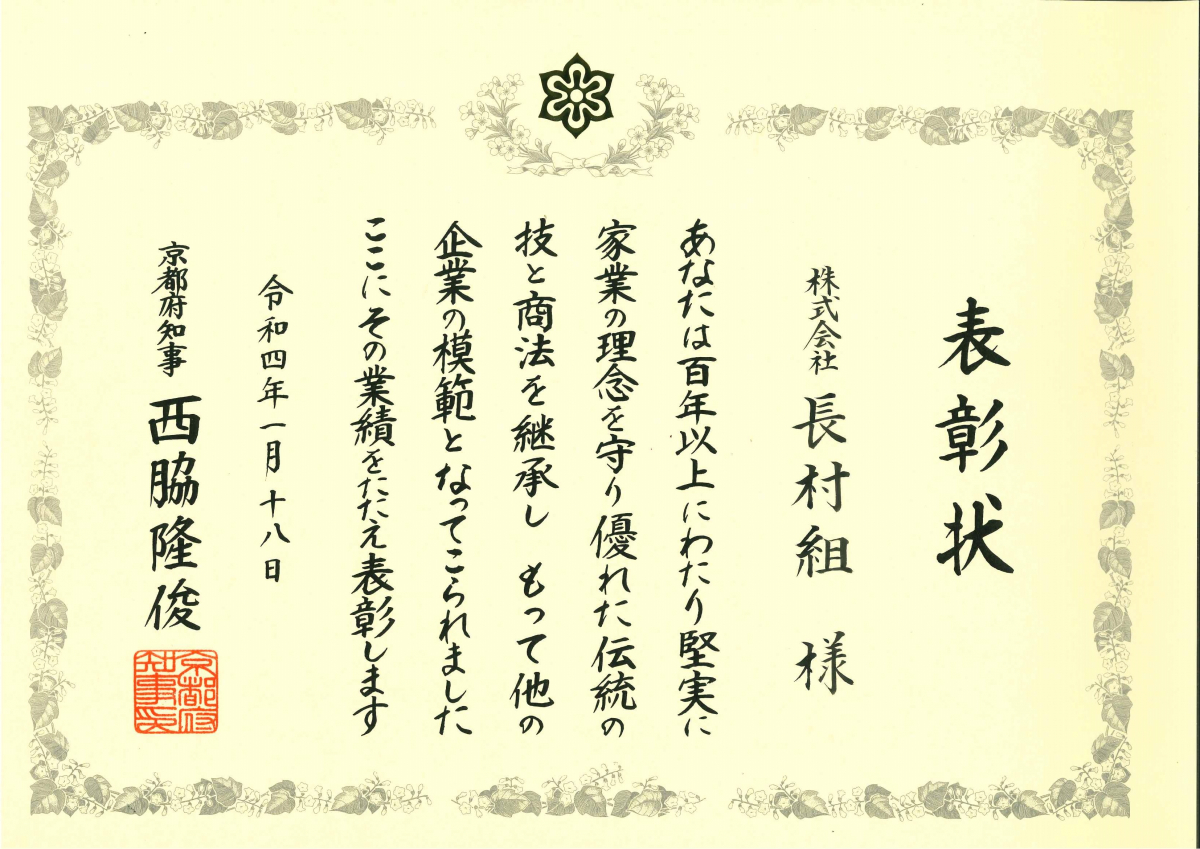 表彰状
株式会社 長村組 様
あなたは百年以上にわたり堅実に
家業の理念を守り優れた伝統の
技と商法を継承し もって他の
企業の模範となってこられました
ここにその業績をたたえ表彰します
令和四年一月十八日
京都府知事 西脇隆俊
京都府
知事之印